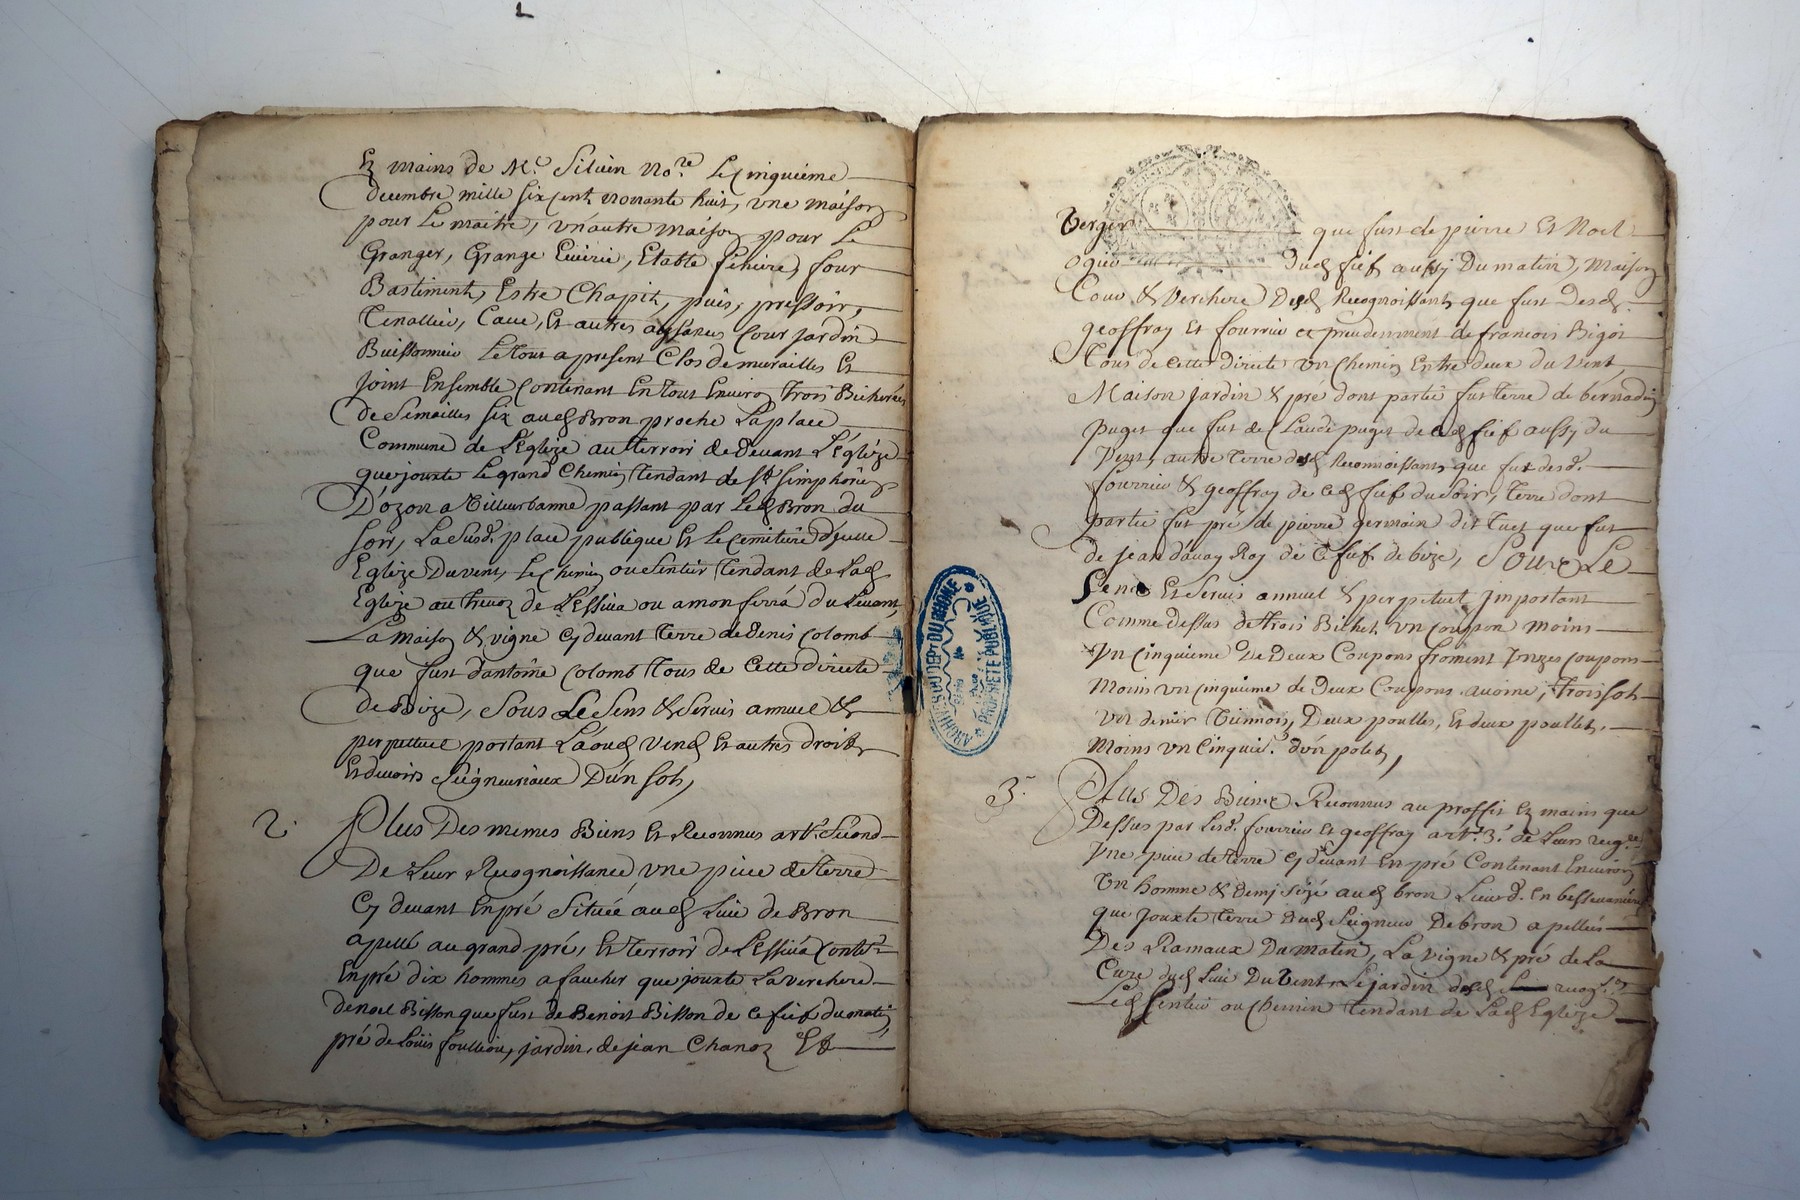 Ez mains de Mᵉ Silvin Noʳᵉ Le Cinquieme
decembre mille six cent nonante huit, vne maison
pour Le maitre, vn autre maison pour Le
Granger, Grange Ecuirie, Etable feniere, four
Bastiment, Estre Chapit, puis, pressoir,
Tinallier, Caue, Et autres aysances Cour jardin
Buissonniere Le tout a present Clos de murailles Et
Joint Ensemble Contenant En tout Enuiron trois Bicherées
de Semailles Six audᵗ Bron proche La place
Commune de L'Eglize au terroir de deuant L'Eglize
que jouxte Le grand Chemin tendant de Sᵗ Simphorien
D'ozon a Villeurbanne passant par Ledᵗ Bron du
soir, La Susdᵉ place publique Et Le Cemitiere d'jcelle
Eglize Du vent, Le Chemin ou Sentier tendant de Ladᵗ
Eglize au treuoz de L'Essiua ou a mon ferra du Leuant,
La maison & vigne Cy deuant terre de denis Colomb
que fust d'antoine Colomb tous de Cette directe
de Bize, Sous Le Sens & Seruis annuel &
perpetuel portant Laoudˢ Vendˢ Et autres droits
Et deuoirs Seigneuriaux D'un sols,
2. Plus Des memes Biens Et Reconnus artᵉ Second
De Leur Recognoissance, vne piece de terre
Cy deuant En pré Située audᵗ Lieu de Bron
apellé au grand pré, Et terroir de L'Essiua Contᵗ
En pré dix hommes a faucher que jouxte La verchere
de noel Bisson que fust de Benoit Bisson de Ce fief du matin,
pré de Loüis foullion, jardin, de jean Chanoz Et
Verger que fust de pierre Et Noel
ogier dudᵗ fief aussy Du matin, Maison
Cour & Verchere Desdˢ Recognoissants que fust Desdˢ
geoffray Et fourrier et precedemment de francois Bigot
Tous de Cette directe vn Chemin Entre deux du Vent,
Maison Jardin & pré dont partie fut terre de bernardin
puget que fut de Claude puget de Cedᵗ fief aussy du
Vent, autre terre desdˢ Reconnoissants que fut desdˢ
fourrier & geoffray de Cedᵗ fief du Soir, terre dont
partie fut pré de pierre germain dit tuet que fut
de jean dauay Roy de Ce fief de bize, Soux Le
Sens Et Seruis annuel & perpetuel Jmportant
Comme dessus de trois Bichets vn Coupon moins
Vn Cinquieme De Deux Coupons froment Vnzes Coupons
Moins vn Cinquieme de Deux Coupons auoine, Trois Sols
Vn denier Viennois, Deux poulles, Et deux poullets
Moins vn Cinquieᵉ d'un polet,
3. Plus Des Biens Reconnus au proffit Ez mains que
Dessus par Lesdˢ fourrier Et geoffray artᵉ 3ᵉ de Leurs recogᶜᵉ
Vne piece de terre Cy deuant En pré Contenant Enuiron
Vn homme & demj Size audᵗ bron Lieu dᵗ En
que jouxte terre dudᵗ Seigneur De bron apellée
Des Ramaux Du matin, La vigne & pré de La
Cure dudᵗ Lieu Du Vent Le jardin desdˢ recogˢ
Ledᵗ Sentier ou Chemin tendant de Ladᵗ Eglize
ARCHIVES DU DEPT DU RHÔNE
PROPRIÉTÉ PUBLIQUE